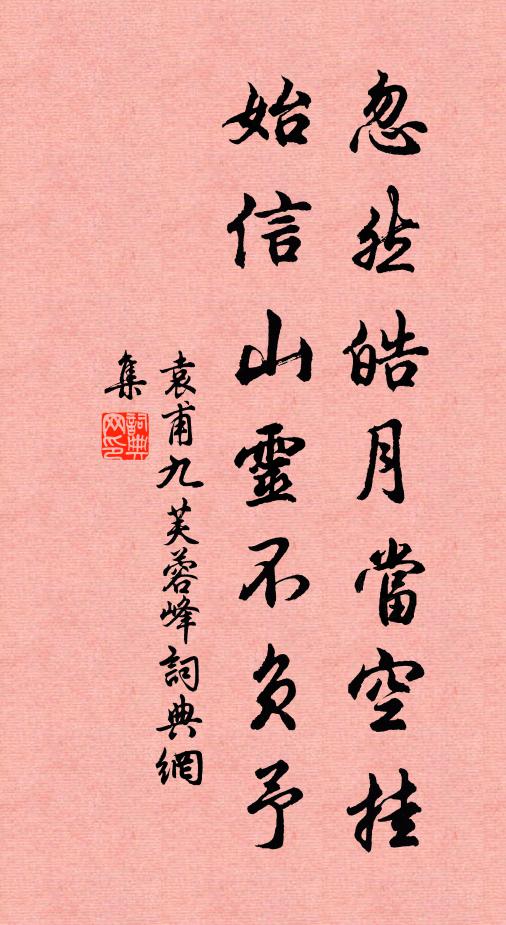 忽然皓月當空挂
始信山靈不負予
袁甫九芙蓉峰詞典網
集
詞典
网印